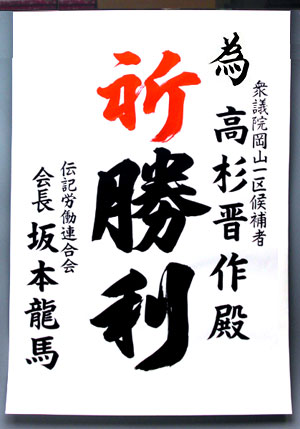 為
衆議院岡山一区候補者
高杉晋作殿
祈勝利
伝記労働連合会
会長 坂本龍馬